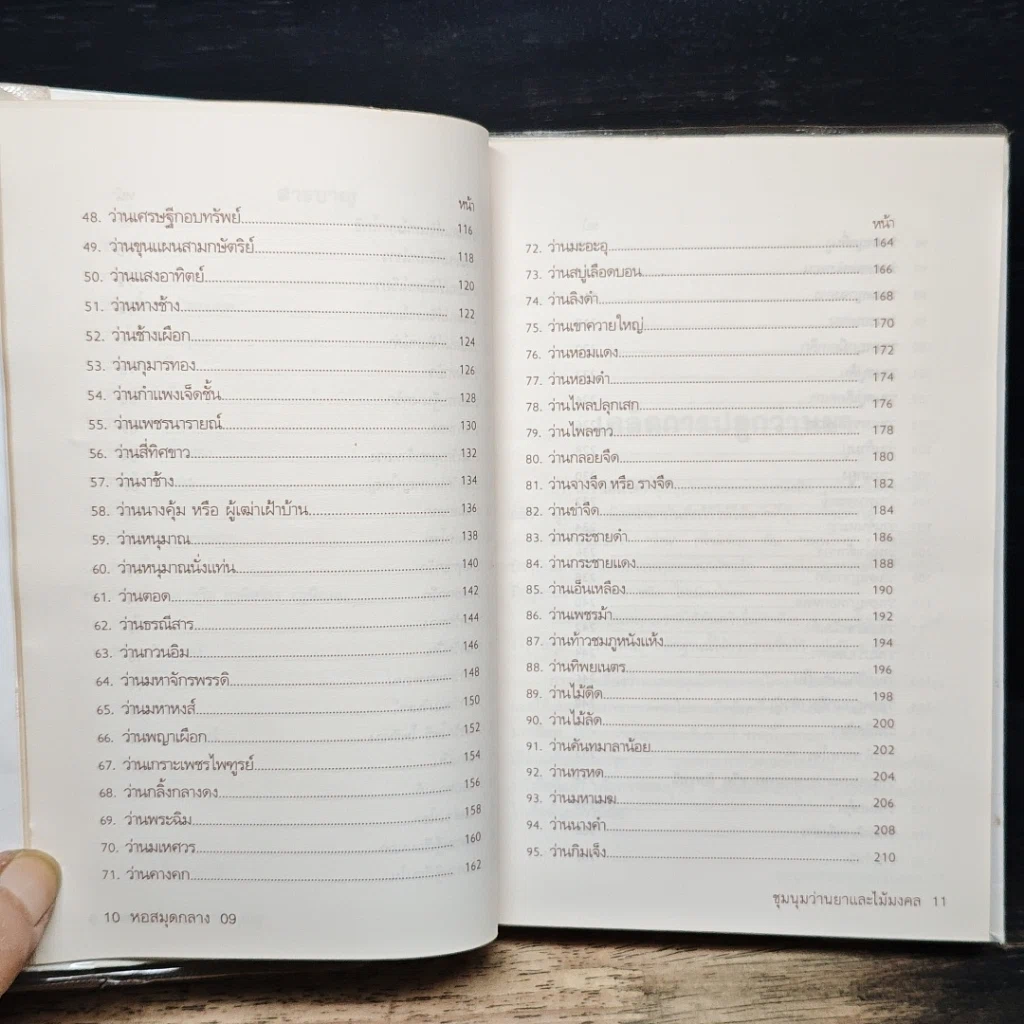 หน้า
48. ว่านเศรษฐีกอบทรัพย์ 116
49. ว่านขุนแผนสามกษัตริย์ 118
50. ว่านแสงอาทิตย์ 120
51. ว่านหางช้าง 122
52. ว่านช้างเผือก 124
53. ว่านกุมารทอง 126
54. ว่านกำแพงเจ็ดชั้น 128
55. ว่านเพชรนารายณ์ 130
56. ว่านสี่ทิศขาว 132
57. ว่านงาช้าง 134
58. ว่านนางคุ้ม หรือ ผู้เฒ่าเฝ้าบ้าน 136
59. ว่านหนุมาณ 138
60. ว่านหนุมาณนั่งแท่น 140
61. ว่านตอด 142
62. ว่านธรณีสาร 144
63. ว่านกวนอิม 146
64. ว่านมหาจักรพรรดิ 148
65. ว่านมหาหงส์ 150
66. ว่านพญาเผือก 152
67. ว่านเกราะเพชรไพฑูรย์ 154
68. ว่านกลิ้งกลางดง 156
69. ว่านพระฉิม 158
70. ว่านมเหศวร 160
71. ว่านคางคก 162
10 หอสมุดกลาง 09
หน้า
72. ว่านมะอะอุ 164
73. ว่านสบู่เลือดบอน 166
74. ว่านลิงดำ 168
75. ว่านเขาควายใหญ่ 170
76. ว่านหอมแดง 172
77. ว่านหอมดำ 174
78. ว่านไพลปลุกเสก 176
79. ว่านไพลขาว 178
80. ว่านกลอยจืด 180
81. ว่านจางจืด หรือ รางจืด 182
82. ว่านข่าจืด 184
83. ว่านกระชายดำ 186
84. ว่านกระชายแดง 188
85. ว่านเอ็นเหลือง 190
86. ว่านเพชรม้า 192
87. ว่านท้าวชมภูหนังแห้ง 194
88. ว่านทิพยเนตร 196
89. ว่านไม้ดีด 198
90. ว่านไม้ลัด 200
91. ว่านคันทมาลาน้อย 202
92. ว่านทรหด 204
93. ว่านมหาเมฆ 206
94. ว่านนางคำ 208
95. ว่านกิมเจ็ง 210
ชุมนุมว่านยาและไม้มงคล 11